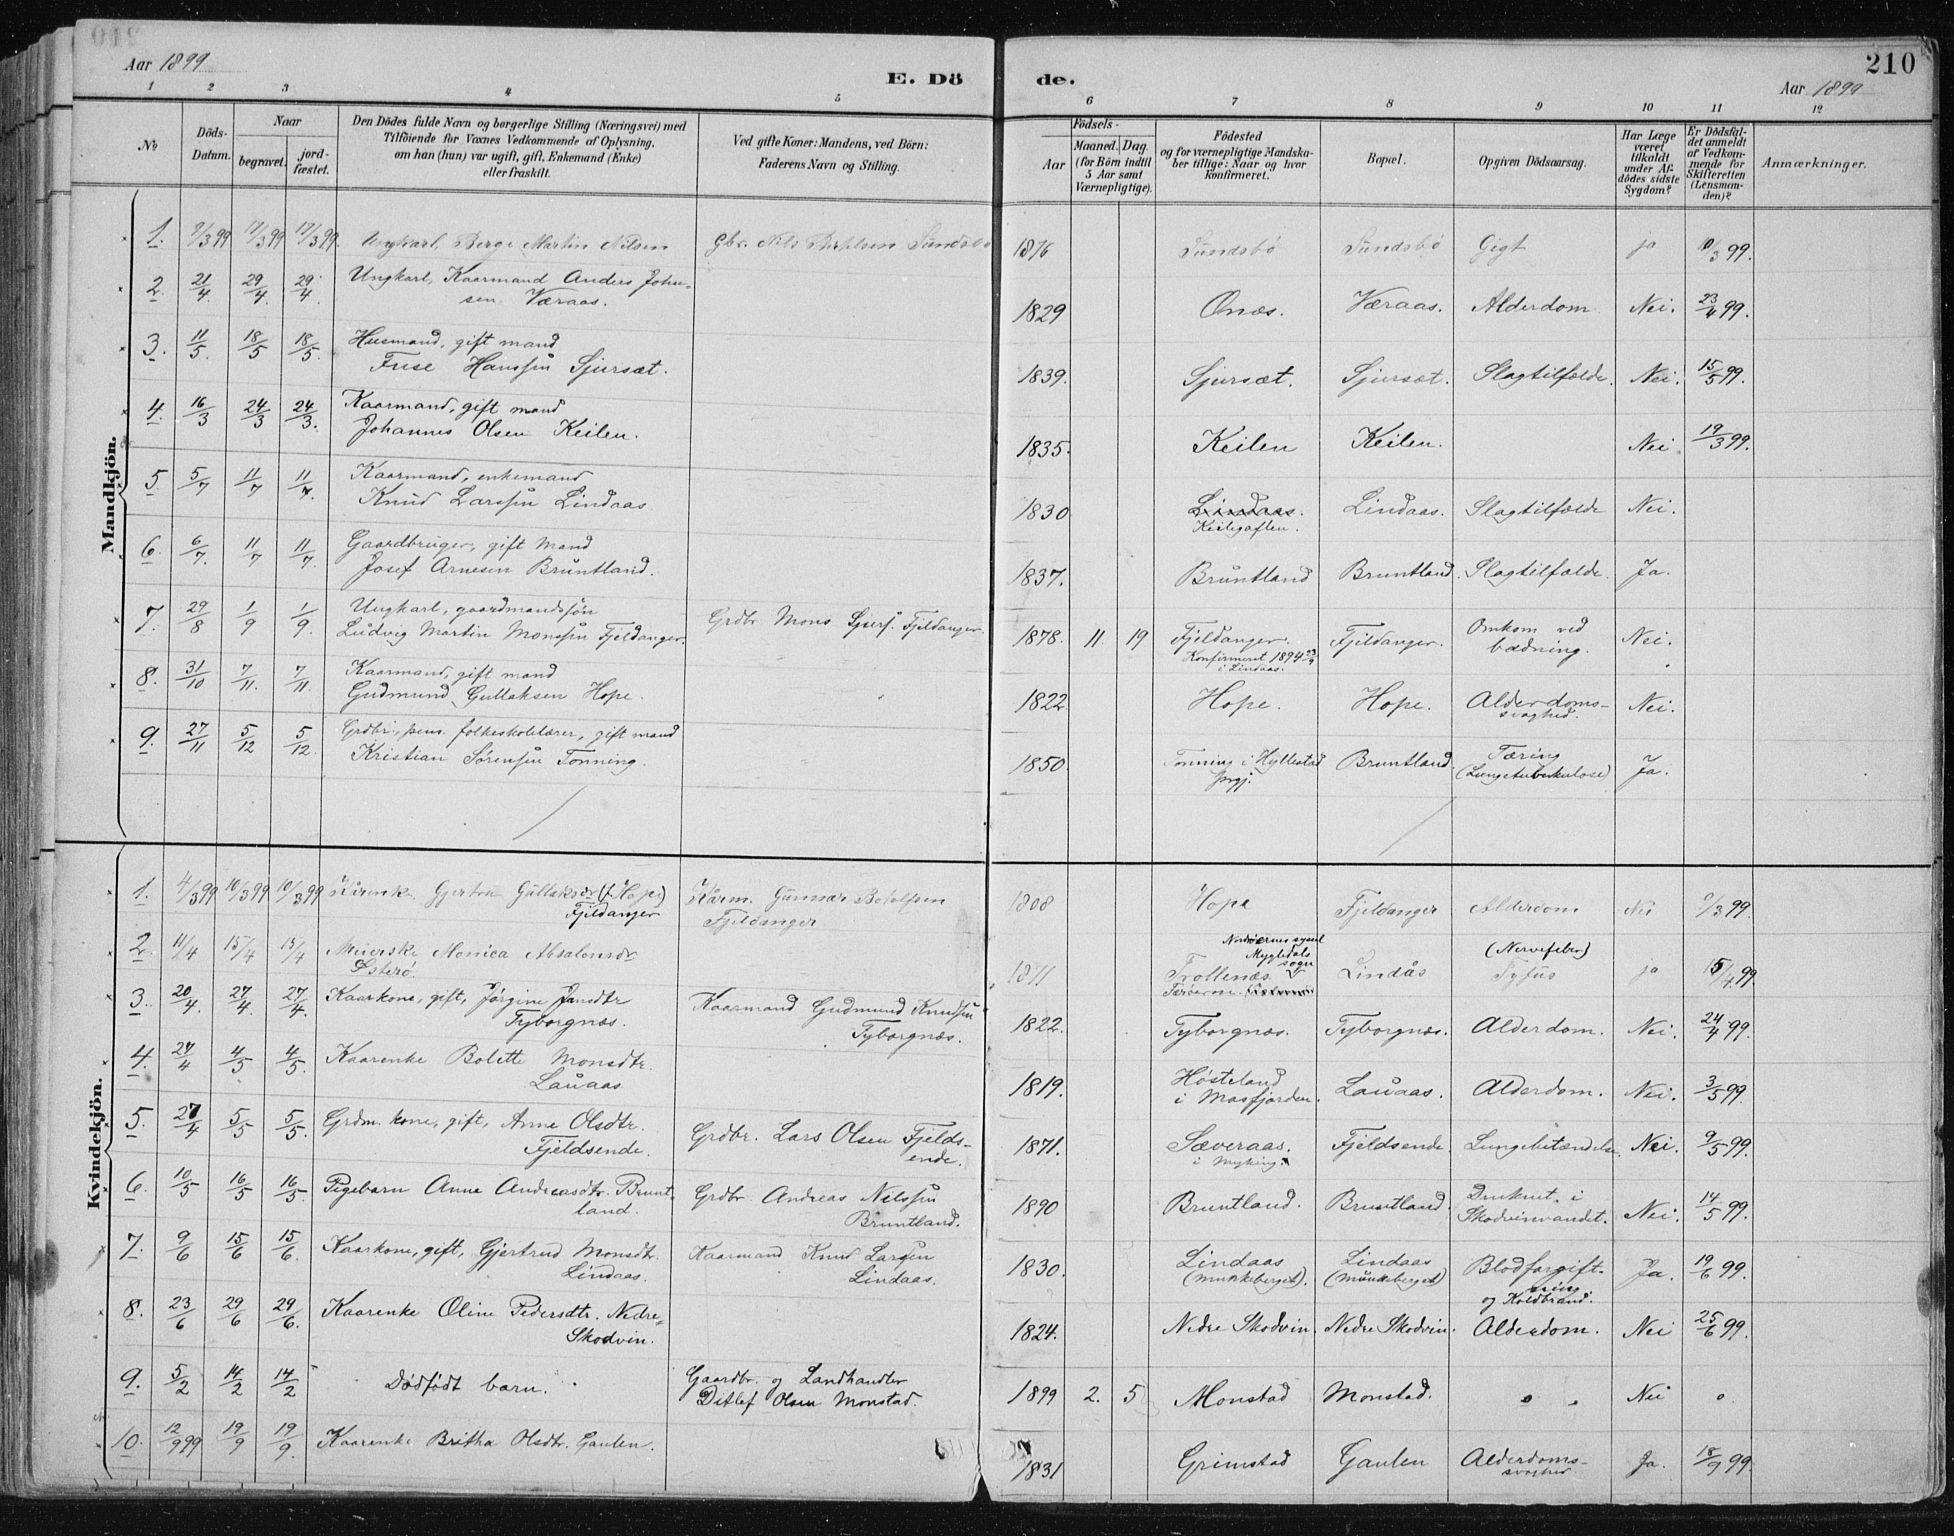 Aar 1899
E. Dö de.
Aar 1899
210
1 2 3 4 5 6 7 8 9 10 11 12
No
Döds-Datum.
Naar
begravet.
jord-fæstet.
Den Dödes fulde Navn og borgerlige Stilling (Næringsvei) med
Tilföiende for Voxnes Vedkommende af Oplysning,
om han (hun) var ugift, gift, Enkemand (Enke)
eller fraskilt.
Ved gifte Koner: Mandens, ved Börn:
Faderens Navn og Stilling.
Födsels-
Aar
Maaned. Dag.
(for Börn indtil
5 Aar samt
Værnepligtige).
Födested
og for værnepligtige Mandska-
ber tillige: Naar og hvor
konfirmeret.
Bopæl.
Opgiven Dödsaarsag.
Har Læge
været
tilkaldt
under Af-
dödes sidste
Sygdom?
Er Dödsfal-
det anmeldt
af Vedkom-
mende for
Skifteretten
(Lensman-
den)?
Anmærkninger.
Mandkjön.
1. 9/3 99 17/3 99 17/3 99. Ungkarl, Berge Martin Nilsen Gbr. Nils Sundsbö 1876 Sundsbö Sundsbö Gigt ja 10/3 99.
2. 21/4 29/4. 29/4. Ungkarl, Kaarmand Anders John-
sen Væraas. 1829 Onæs. Væraas. Alderdom Nei. 23/4 99.
3. 11/5. 18/5 18/5. Husmand, gift mand
Fuse Hanssøn Sjursæt. 1839. Sjursæt. Sjursæt. Slagtilfælde. Nei. 15/5 99.
4. 16/3 24/3 24/3. Kaarmand, gift mand
Johannes Olsen Keilen. 1835. Keilen Keilen. Nei 19/3 99.
5. 5/7 11/7 11/7. Kaarmand, enkemand
Knud Larssøn Lindaas 1830 Lindaas. Lindaas. Slagtilfælde Nei.
6. 6/7. 11/7 11/7 Gaardbruger, gift Mand
Josef Arnesen Bruntland. 1837. Bruntland Bruntland. Slagtilfælde. Ja.
7. 29/8 1/9 1/9. Ungkarl, gaardmandssøn
Ludvig Martin Monssøn Fjeldanger. Grdbr Mons Sjurs. Fjeldanger. 1878. 11. 19 Fjeldanger. Fjeldanger. Omkom ved
bædning. Nei.
Konfirmeret 1894 23/9
i Lindaas.
8. 31/10 7/11. 7/11. Kaarmand, gift mand
Gudmund Gullaksen Hope. 1822. Hope. Hope. Alderdoms-
svaghed. Nei.
9. 27/11 5/12 5/12. Grdbr., pens. folkeskolelærer, gift mand
Kristian Sørenssøn Tonning. 1850. Tonning i Hyllestad
prgj. Bruntland. Tæring
(Lungetuberkulose) Ja.
Kvindekjön.
1. 4/3 99 10/3 99 10/3 99 Kårenke Gjertru Gullaksdr (f. Hope)
Fjeldanger Kårm. Gunnar Botolfsen
Fjeldanger 1808 Hope Fjeldanger Alderdom Nei 9/3 99.
2. 11/4 15/4 15/4 Meierske Monica Absalonsdr
Østerø. 1871 Norderøernes syssel
Mygledals
sogn
Trollenæs.
Færøerne Lindås (Nervefeber)
Tyfus ja 15/4 99.
3. 20/4. 27/4. 27/4. Kaarkone, gift, Jørgine Jansdtr
Tyborgnæs. Kaarmand Gudmund Knudsøn
Tyborgnæs. 1822. Tyborgnæs. Tyborgnæs. Alderdom. Nei. 24/4 99.
4. 27/4 4/5 4/5. Kaarenke Bolette Monsdtr.
Lauaas. 1819. Høsteland
i Masfjorden. Lauaas. Alderdom. Nei. 3/5 99.
5. 27/4 5/5 5/5. Grdm. kone, gift, Anne Olsdtr.
Fjeldsende. Grdbr. Lars Olsen Fjelds-
ende. 1871. Sæveraas.
i Myking. Fjeldsende. Lungebetændelse. Nei. 9/5 99.
6. 10/5 16/5 16/5. Pigebarn Anne Andreasdtr. Brunt-
land. Grdbr. Andreas Nilssøn
Bruntland. 1890 Bruntland. Bruntland. Druknet i
Skodvinvandet. Nei. 14/5 99.
7. 9/6 15/6 15/6. Kaarkone, gift, Gjertrud Monsdtr.
Lindaas. Kaarmand Knud Larsøn
Lindaas. 1830. Lindaas
(Munkeberget). Lindaas
(Munkeberget) Blodforgift-
ning
og Koldbrand. Ja. 19/6 99.
8. 23/6 29/6 29/6. Kaarenke Oline Pedersdtr. Nedre-
Skodvin. 1824. Nedre Skodvin. Nedre Skodvin. Alderdom. Nei 25/6 99.
9. 5/2 14/2 14/2 Dødfødt barn. Gaardbr. og Landhandler
Ditlef Olsen Monstad. 1899 2. 5 Monstad Monstad. Nei
10. 12/9 99 19/9 19/9. Kaarenke Britha Olsdtr. Gaulen. 1831 Grimstad Gaulen Alderdoms-
svaghed Ja. 18/9 99.